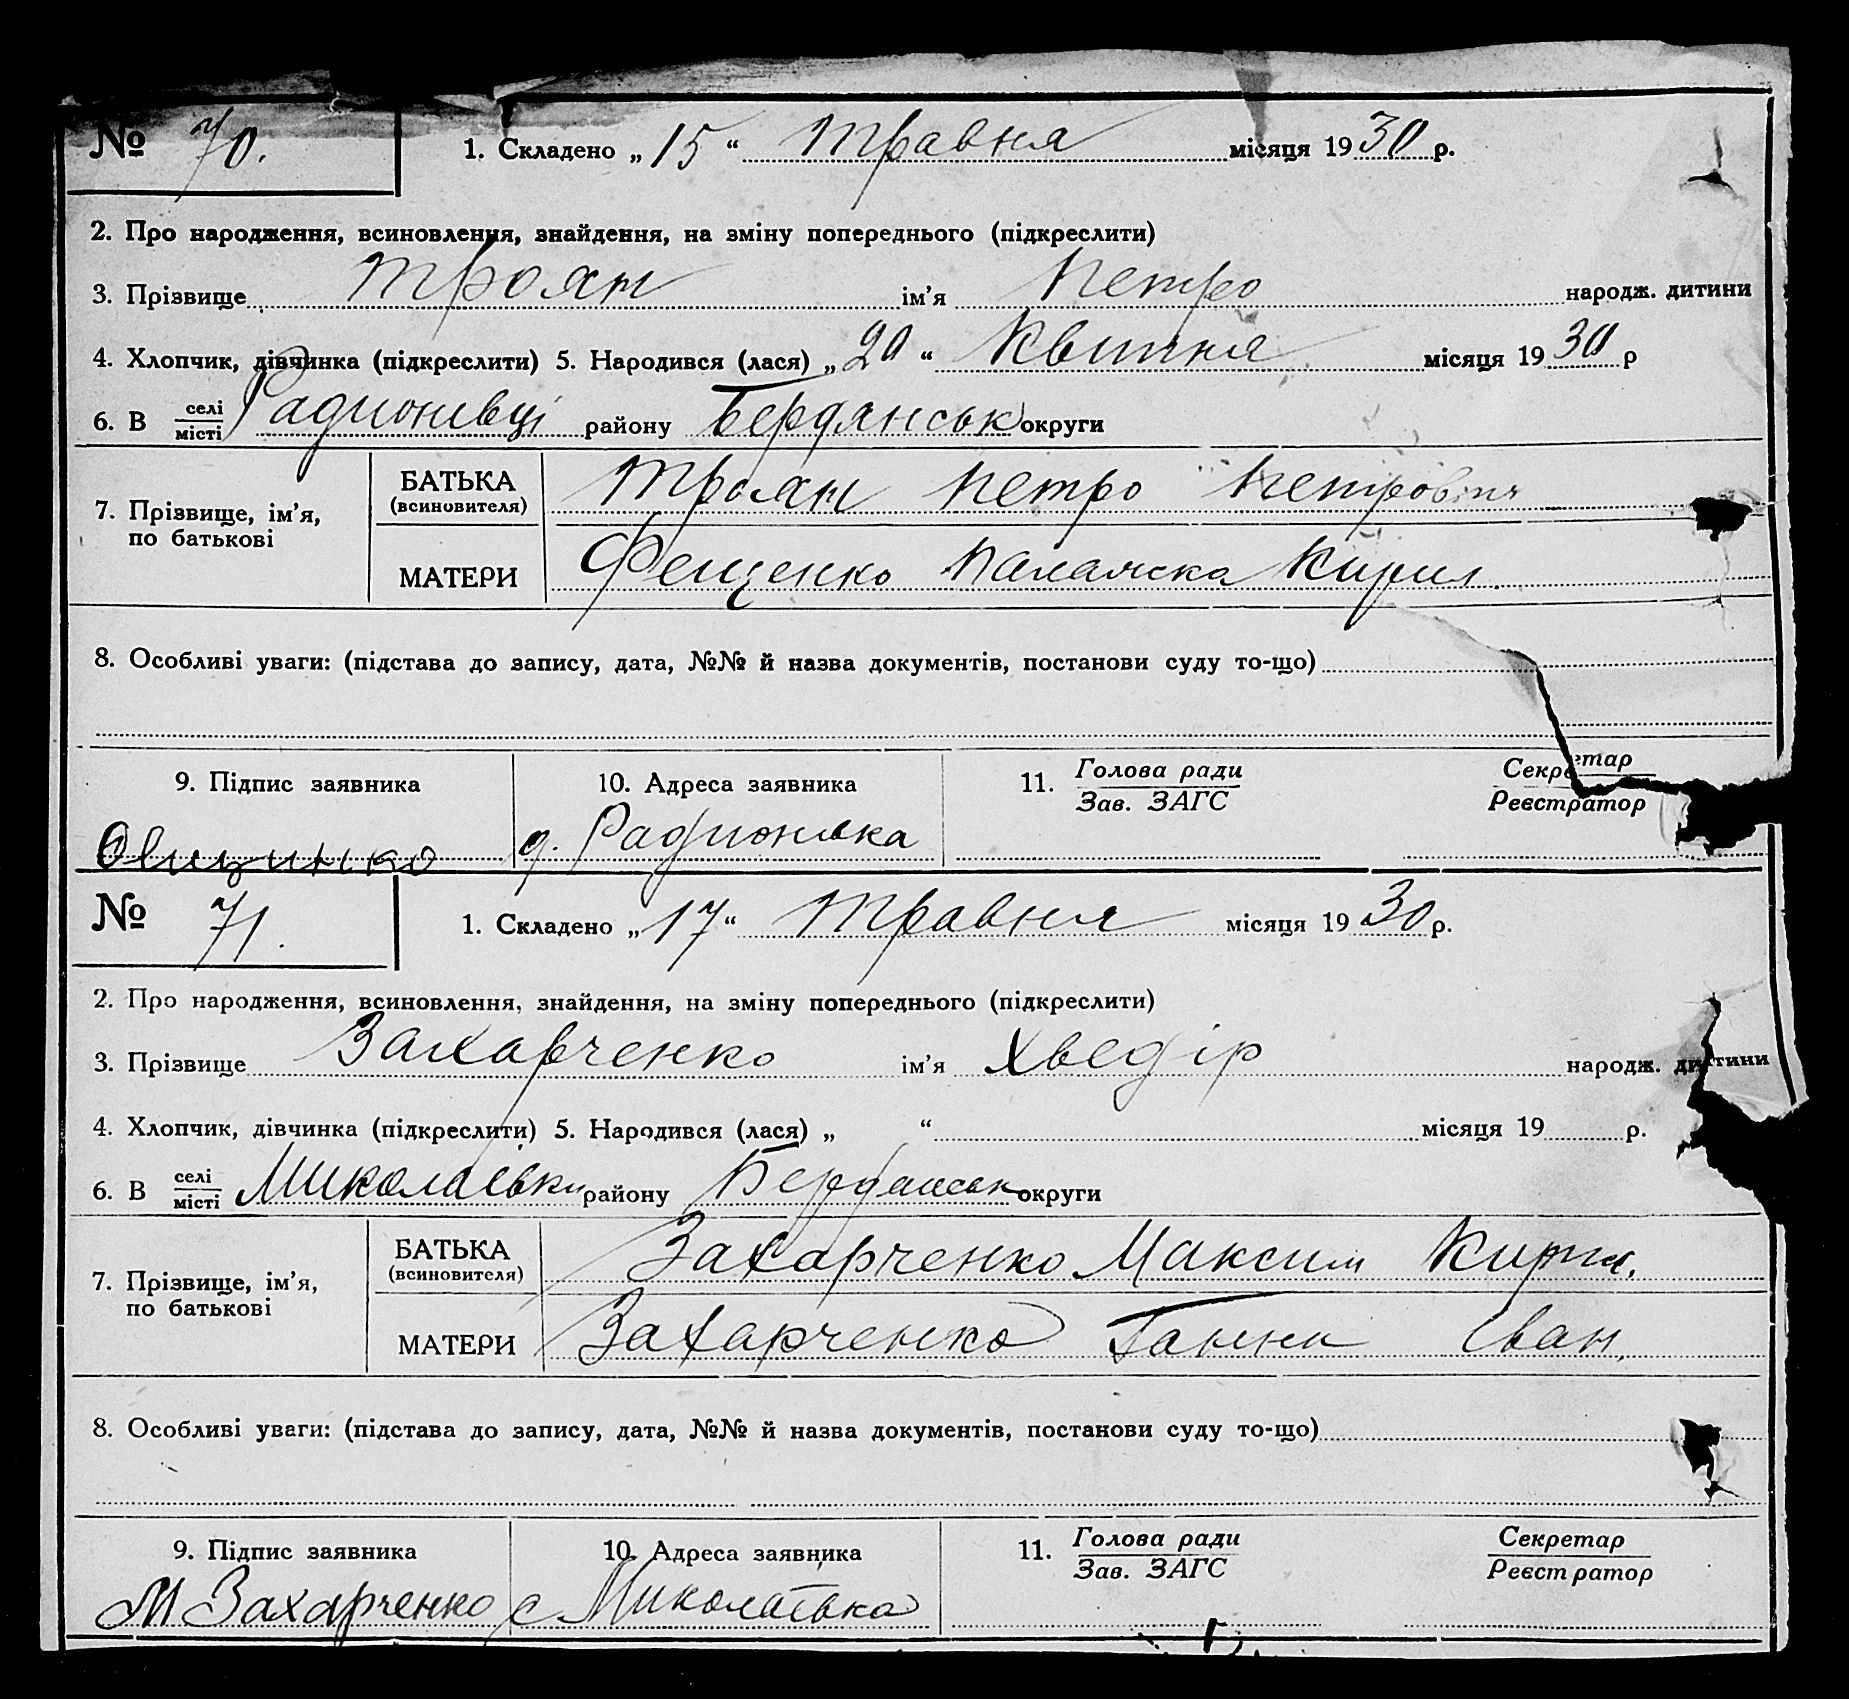 № 70. 1. Складено „15“ Травня місяця 1930 р.
2. Про народження, всиновлення, знайдення, на зміну попереднього (підкреслити)
3. Прізвище Троян ім’я Петро народж. дитини
4. Хлопчик, дівчинка (підкреслити) 5. Народився (лася) „20“ Квитня місяця 1930 р
6. В селі місті Радионівці району Бердянськ округи
7. Прізвище, ім’я, по батькові
БАТЬКА (всиновителя) Троян Петро Петрович
МАТЕРИ Фещенко Палажка Кирил
8. Особливі уваги: (підстава до запису, дата, №№ й назва документів, постанови суду то-що)
9. Підпис заявника 10. Адреса заявника 11. Голова ради Зав. ЗАГС Секретар Реєстратор
Радионівка
№ 71. 1. Складено „17“ Травня місяця 1930 р.
2. Про народження, всиновлення, знайдення, на зміну попереднього (підкреслити)
3. Прізвище Захарченко ім’я Хведір народж. дитини
4. Хлопчик, дівчинка (підкреслити) 5. Народився (лася) „ “ місяця 19 р.
6. В селі місті Миколаївки району Бердянськ округи
7. Прізвище, ім’я, по батькові
БАТЬКА (всиновителя) Захарченко Максим Кирил.
МАТЕРИ Захарченко Ганни Іван.
8. Особливі уваги: (підстава до запису, дата, №№ й назва документів, постанови суду то-що)
9. Підпис заявника 10. Адреса заявника 11. Голова ради Зав. ЗАГС Секретар Реєстратор
М Захарченко с Миколаївка